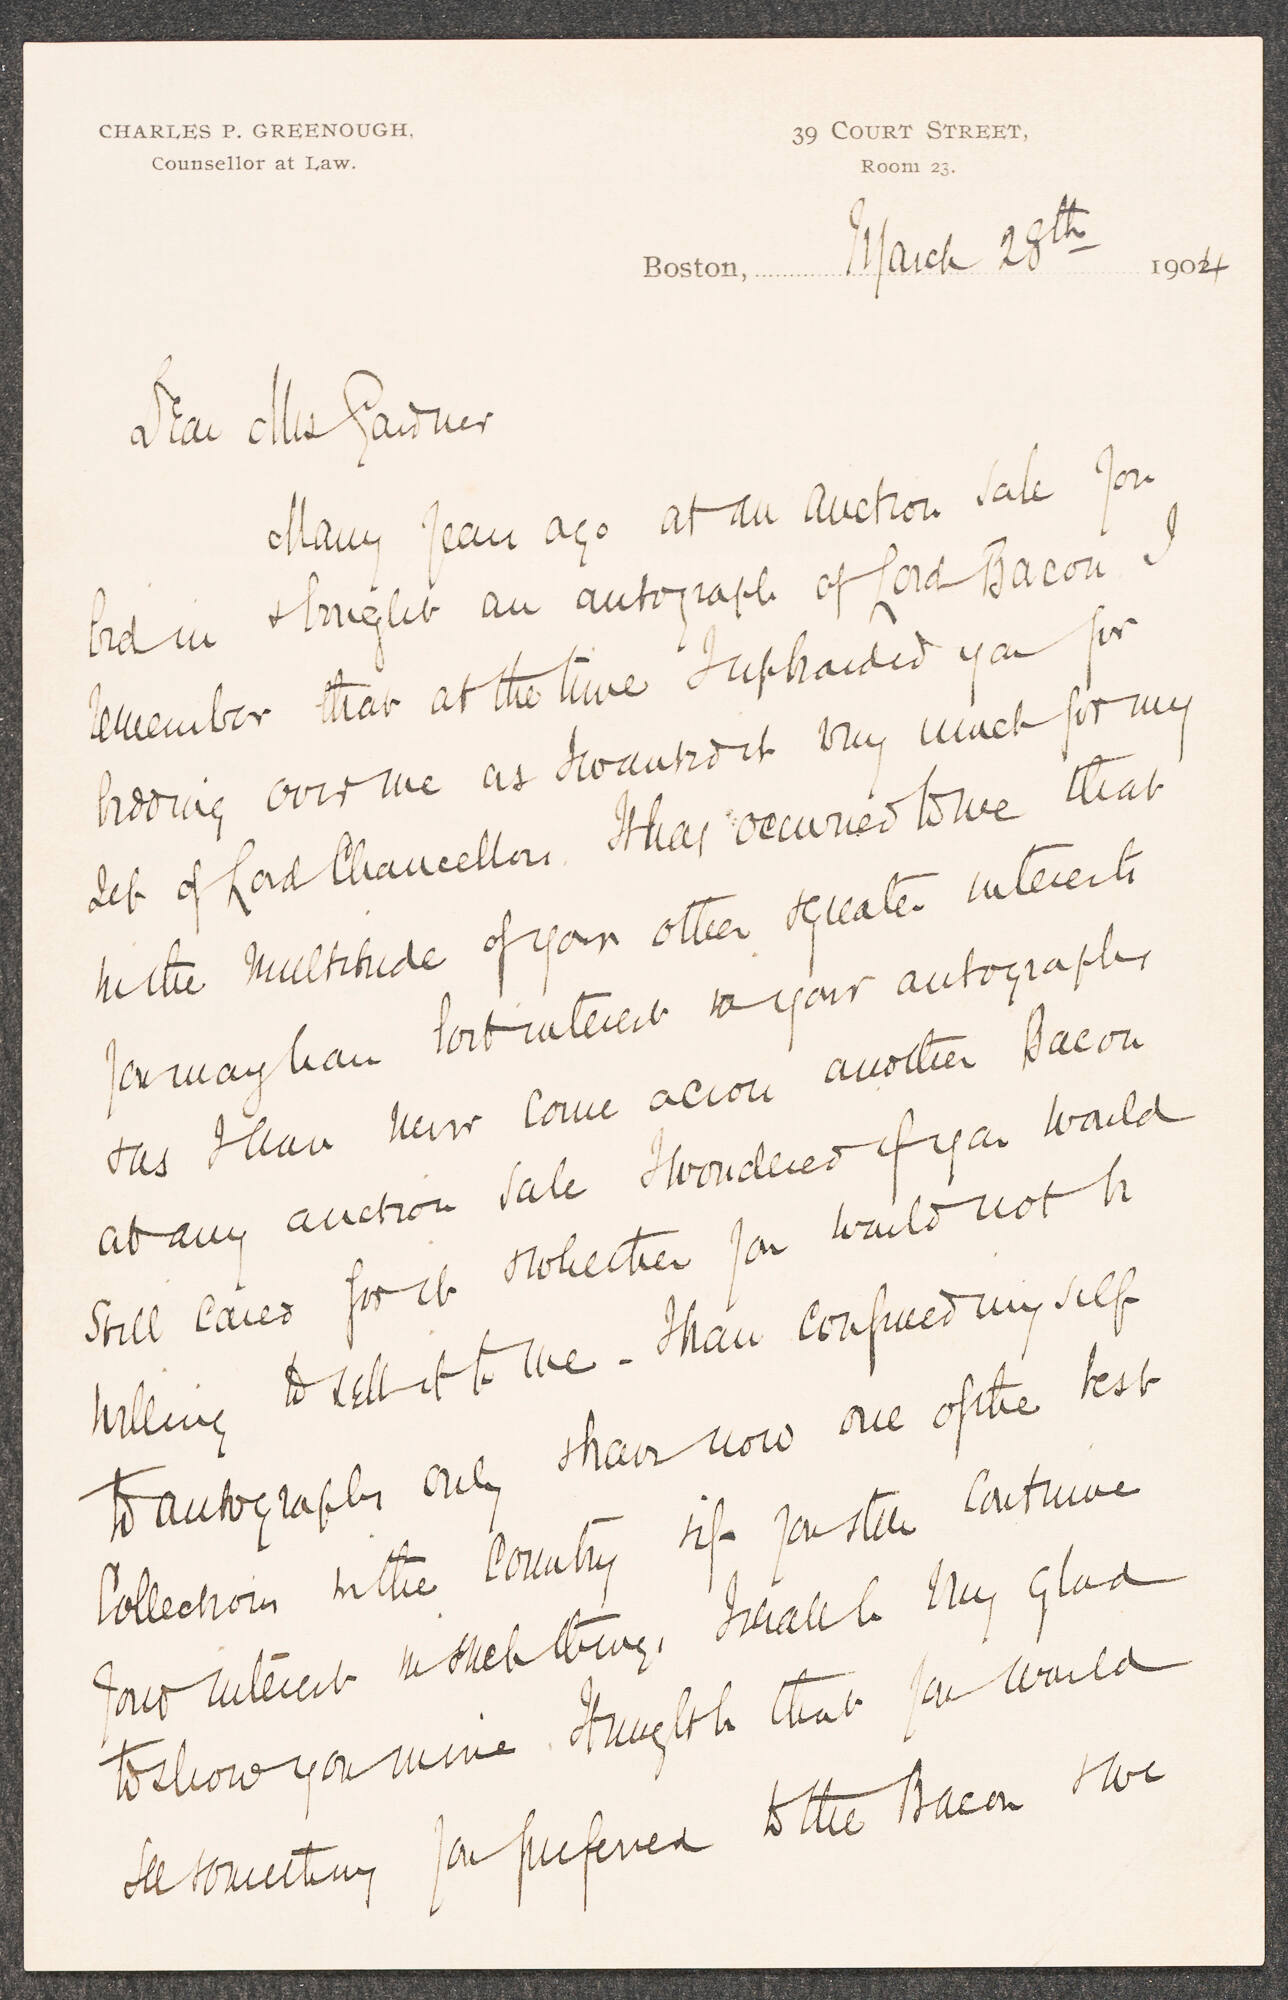 CHARLES P. GREENOUGH,
Counsellor at Law.
39 COURT STREET,
Room 23.
Boston, March 28th 1904
Dear Mrs Gardner
Many years ago at an auction sale you
bid in & bought an autograph of Lord Bacon. I
remember that at the time I upbraided you for
bidding over me as I wanted it very much for my
set of Lord Chancellors. It has occurred to me that
in the multitude of your other & greater interests
you may have lost interest in your autographs
& as I have never come across another Bacon
at any auction sale I wondered if you would
still cared for it & whether you would not be
willing to sell it to me - I have confined myself
to autographs only & have now one of the best
collections in the country & if you still continue
your interest in such things, I shall be very glad
to show you mine. It might be that you would
see something you preferred to the Bacon & we